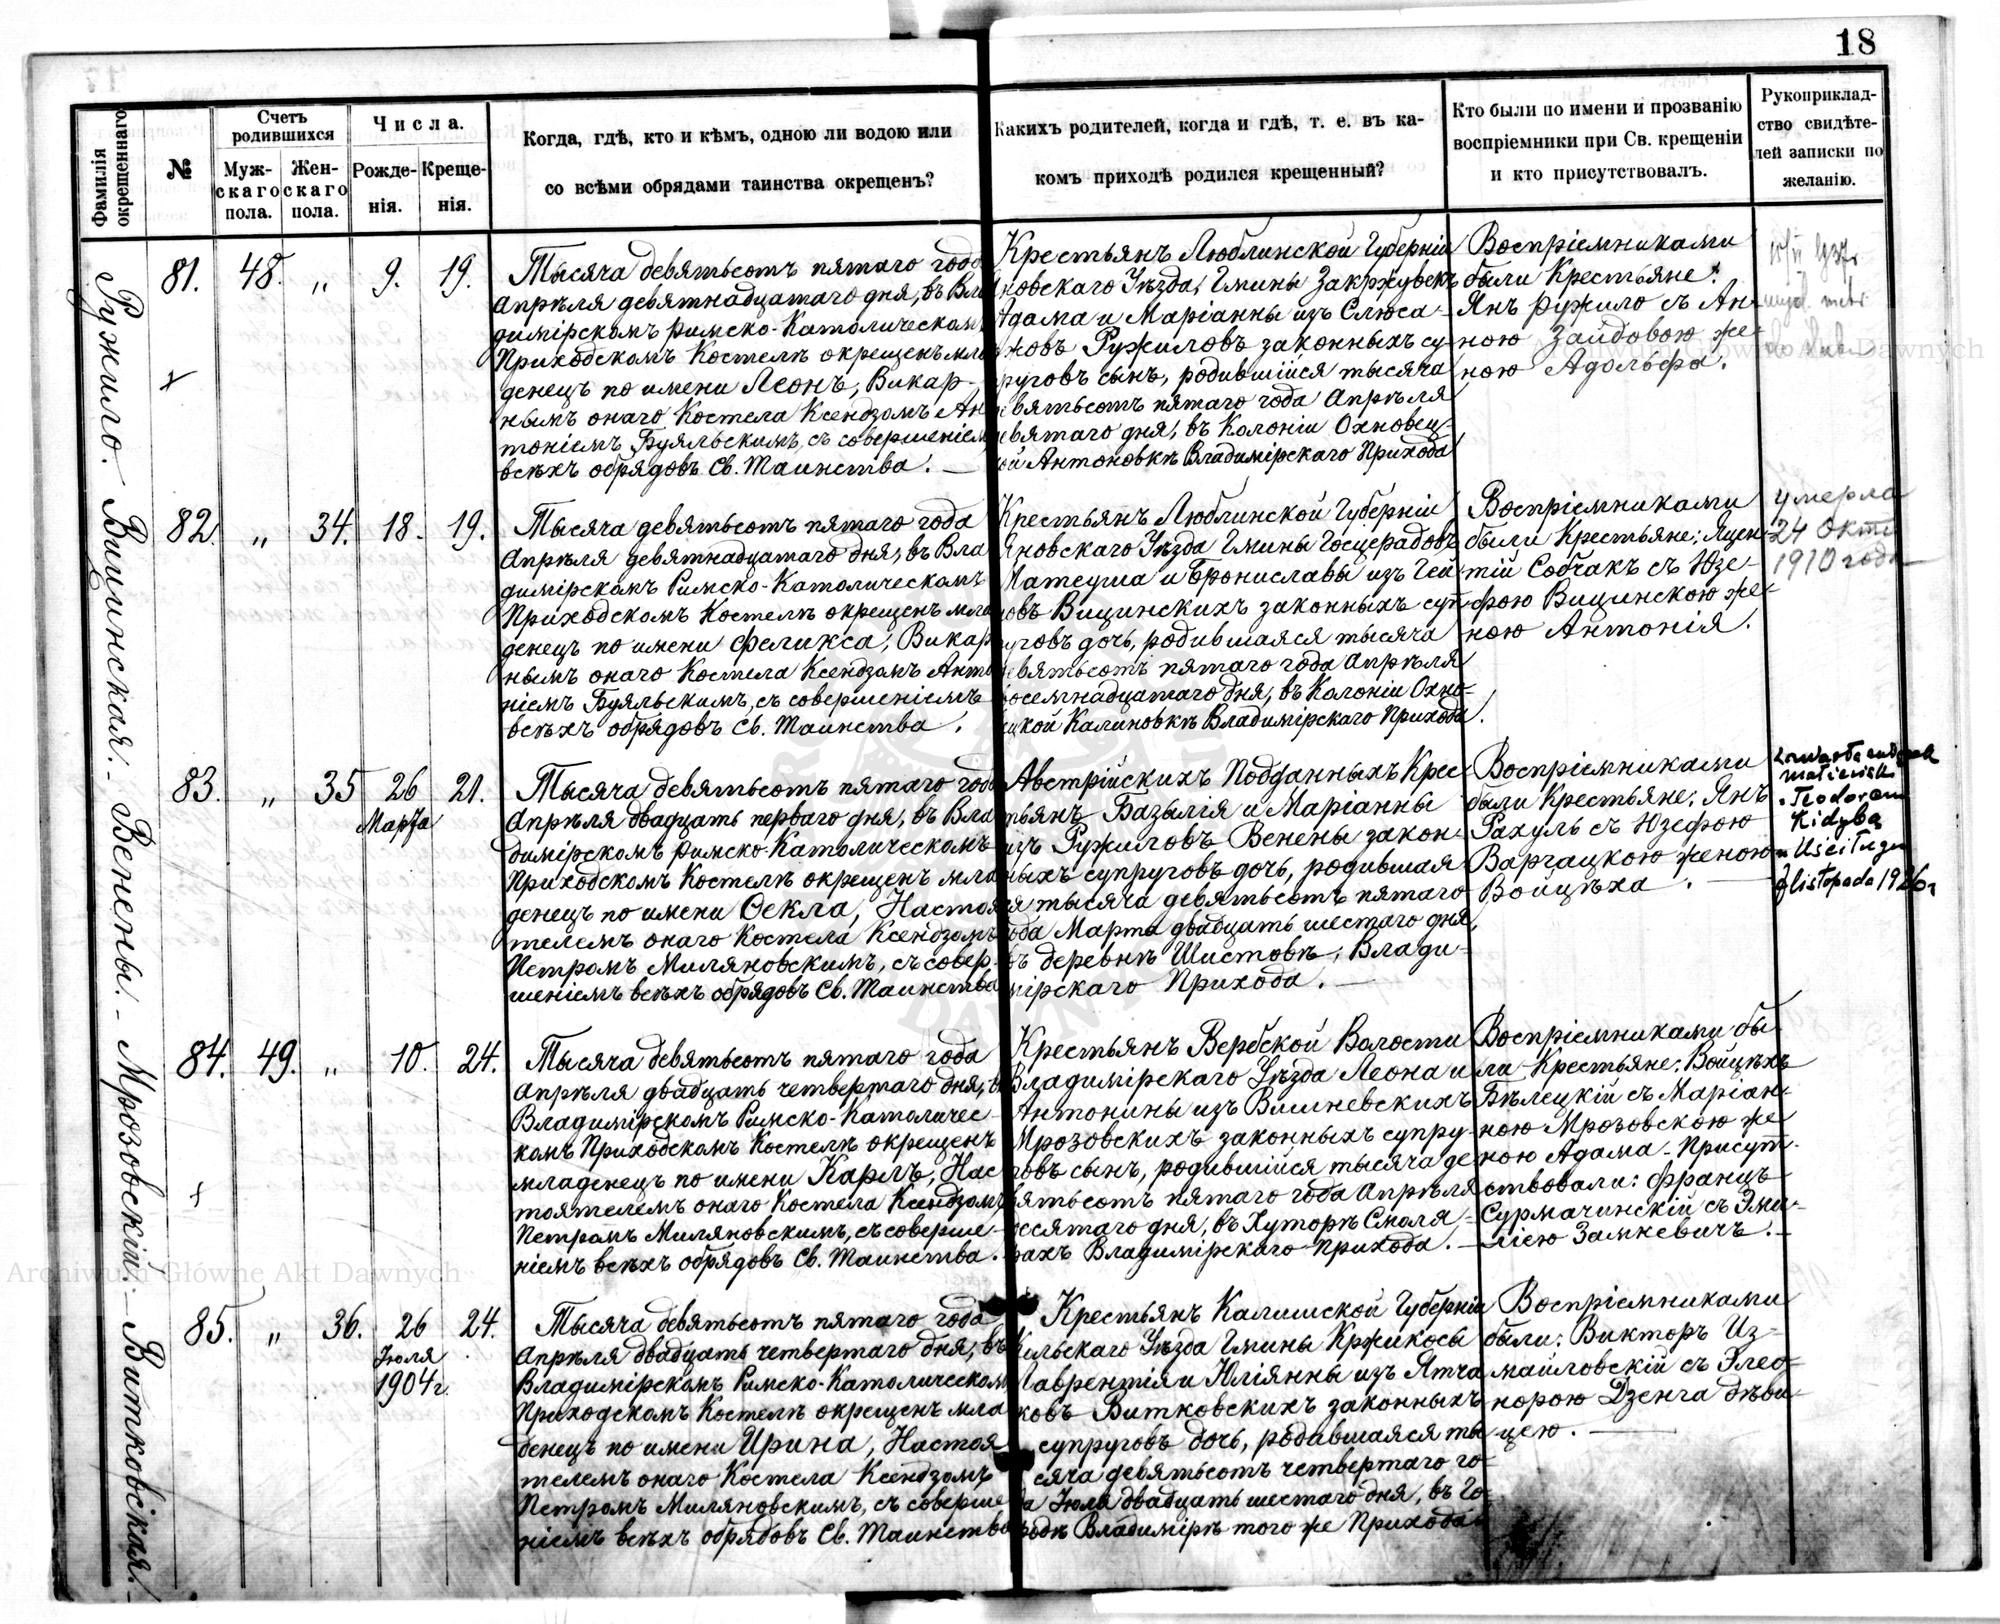 18
Фамилія
окрещеннаго
№
Счетъ
родившихся
Муж-
скаго
пола.
Жен-
скаго
пола.
Числа.
Рожде-
нія.
Креще-
нія.
Когда, гдѣ, кто и кѣмъ, одною ли водою или
со всѣми обрядами таинства окрещенъ?
Какихъ родителей, когда и гдѣ, т. е. въ ка-
комъ приходѣ родился крещенный?
Кто были по имени и прозванію
воспріемники при Св. крещеніи
и кто присутствовалъ.
Рукоприклад-
ство свидѣте-
лей записки по
желанію.
Ружило.
81. 48. „ 9. 19.
Тысяча девятьсотъ пятаго года
Апрѣля девятнадцатаго дня, въ Вла
димірскомъ римско-Католическомъ
Приходскомъ Костелѣ окрещенъ мла
денецъ по имени Леонъ, Викар-
нымъ онаго Костела Ксендзомъ Ан
тоніемъ Буяльскимъ, съ совершеніем
всѣхъ обрядовъ Св. Таинства.
Крестьянъ Люблинской Губерніи
новскаго Уѣзда, Гмины Закржувекъ
Адама и Маріанны изъ Слюса-
жовъ Ружиловъ законныхъ су-
руговъ сынъ, родившійся тысяча
евятьсотъ пятаго года Апрѣля
евятаго дня, въ Колоніи Охновец-
ой Антоновкѣ Владимірскаго Прихода
Воспріемниками
были Крестьяне:
Янъ Ружило съ Ан-
ною Зайдовою же-
ною Адольфа.
Вицинская.
82. „ 34. 18. 19.
Тысяча девятьсотъ пятаго года
Апрѣля девятнадцатаго дня, въ Вла
димірскомъ Римско-Католическомъ
Приходскомъ Костелѣ окрещенъ мла
денецъ по имени Феликса, Викар
нымъ онаго Костела Ксендзомъ Анто
ніемъ Буяльскимъ, съ совершеніемъ
всѣхъ обрядовъ Св. Таинства.
Крестьянъ Люблинской Губерніи
Яновскаго Уѣзда Гмины Госцерадовъ
Матеуша и Брониславы изъ Гей
овъ Вицинскихъ законныхъ суп
уговъ дочь, родившаяся тысяча
евятьсотъ пятаго года Апрѣля
восемнадцатаго дня, въ Колоніи Охно-
цкой Калиновкѣ Владимірскаго Прихода.
Воспріемниками
были Крестьяне: Яцен-
тій Собчакъ съ Юзе-
фою Вицинскою же-
ною Антонія.
умерла
24 Окт
1910 года
Венены.
83. „ 35 26 21.
Марта
Тысяча девятьсотъ пятаго года
Апрѣля двадцать перваго дня, въ Вла
димірскомъ римско-Католическомъ
Приходскомъ Костелѣ окрещенъ мла
денецъ по имени Ѳекла, Настоя
телемъ онаго Костела Ксендзомъ
Петромъ Миляновскимъ, съ совер-
шеніемъ всѣхъ обрядовъ Св. Таинства
Австрійскихъ Подданныхъ Крес-
тьянъ Базылія и Маріанны
изъ Ружиловъ Венены закон-
ныхъ супруговъ дочь, родившая
я тысяча девятьсотъ пятаго
ода Марта двадцать шестаго дня,
въ деревнѣ Шистовѣ, Влади-
мірскаго Прихода.
Воспріемниками
были Крестьяне: Янъ
Рахуль съ Юзефою
Варгацкою женою
Войцѣха.
Teodorem
Kidybą
listopada 1926 r
Мрозовскій.
84. 49. „ 10. 24.
Тысяча девятьсотъ пятаго года
Апрѣля двадцать четвертаго дня, въ
Владимірскомъ Римско-Католичес-
комъ Приходскомъ Костелѣ окрещенъ
младенецъ по имени Карлъ, Нас
тоятелемъ онаго Костела Ксендзомъ
Петромъ Миляновскимъ, съ соверше-
ніемъ всѣхъ обрядовъ Св. Таинства.
Крестьянъ Вербской Волости
Владимірскаго Уѣзда Леона и
Антонины изъ Вишневскихъ
Мрозовскихъ законныхъ супру-
говъ сынъ, родившійся тысяча де
вятьсотъ пятаго года Апрѣля
десятаго дня, въ Хуторѣ Смоля-
рахъ Владимірскаго прихода.
Воспріемниками бы-
ли Крестьяне: Войцѣхъ
Бѣлецкій съ Маріан-
ною Мрозовскою же
ною Адама - Присут-
ствовали: Францъ
Сурмачинскій съ Эми-
ліею Замкевичъ.
Витковская.
85. „ 36. 26 24.
Іюля
1904 г.
Тысяча девятьсотъ пятаго года
Апрѣля двадцать четвертаго дня, въ
Владимірскомъ Римско-Католическомъ
Приходскомъ Костелѣ окрещенъ мла
денецъ по имени Ирина, Настоя
телемъ онаго Костела Ксендзомъ
Петромъ Миляновскимъ, съ соверше
ніемъ всѣхъ обрядовъ Св. Таинства
Крестьянъ Калишской Губерніи
Кильскаго Уѣзда Гмины Кржикосы
Лаврентія и Юліянны изъ Ятча
ковъ Витковскихъ законныхъ
супруговъ дочь, родившаяся ты
сяча девятьсотъ четвертаго го-
да Іюля двадцать шестаго дня, въ Го-
родѣ Владимірѣ того же Прихода
Воспріемниками
были: Викторъ Из-
майловскій съ Элео-
норою Дзенга дѣви-
цею.
Archiwum Główne Akt Dawnych
Archiwum Główne Akt Dawnych